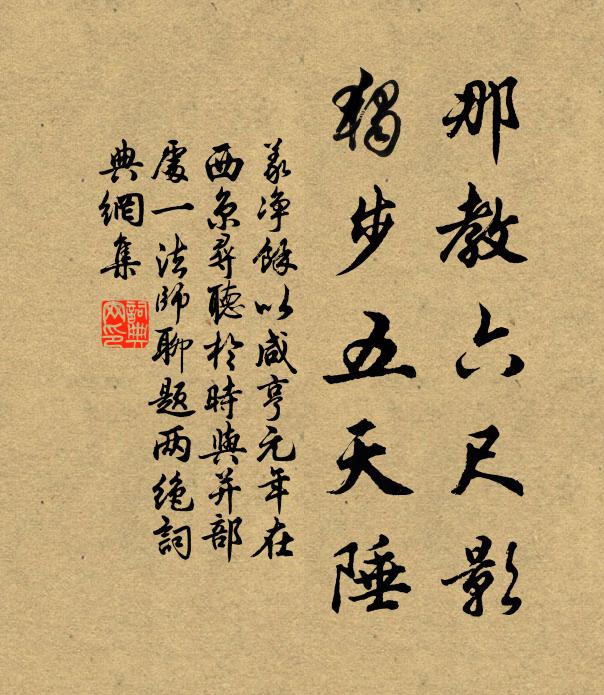 那教六尺影
獨步五天陲
義淨餘以咸亨元年在
西京尋聽於時與并部
處一法師聊題兩絕詞
典網集
詞典
网印